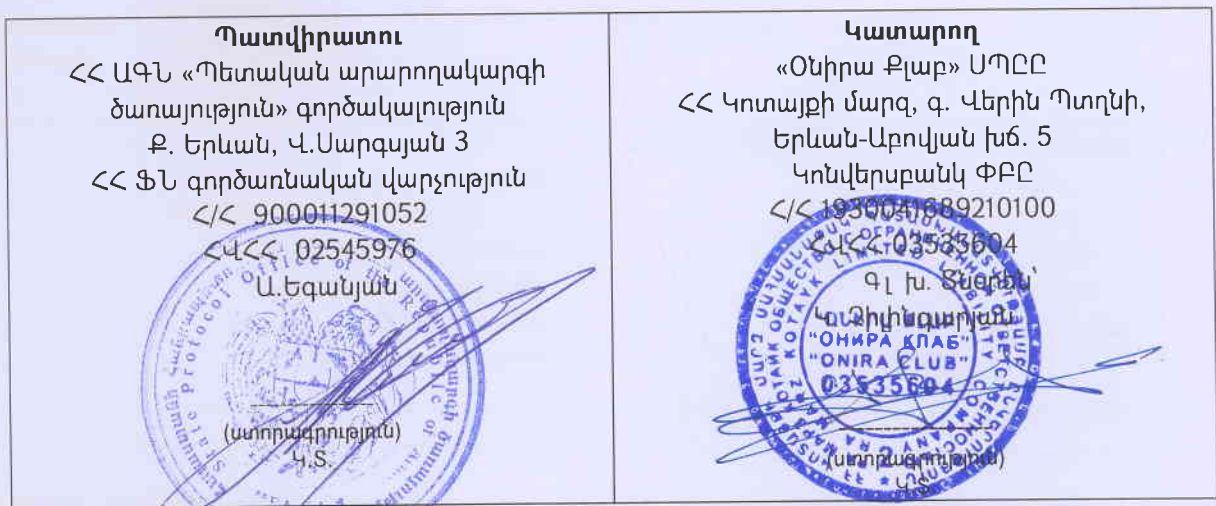 Պատվիրատու
ՀՀ ԱԳՆ «Պետական արարողակարգի
ծառայություն» գործակալություն
Ք. Երևան, Վ.Սարգսյան 3
ՀՀ ՖՆ գործառնական վարչություն
Հ/Հ 900011291052
ՀՎՀՀ 02545976
Ա.Եգանյան
(ստորագրություն)
Կ.Տ.
State Protocol Office of the Republic of
Կատարող
«Օնիրա Քլաբ» ՍՊԸԸ
ՀՀ Կոտայքի մարզ, գ. Վերին Պտղնի,
Երևան-Աբովյան խճ. 5
Կոնվերսբանկ ՓԲԸ
Հ/Հ 1930041689210100
ՀՎՀՀ 03535604
Գլ խ. Տնօրեն՝
Կ. Չիլինգարյան
"ОНИРА КЛАБ"
"ONIRA CLUB"
03535604
(ստորագրություն)
Կ.Տ.